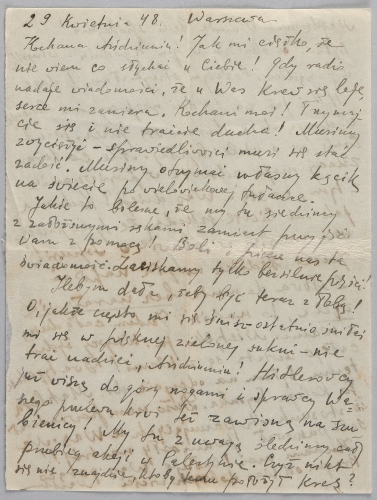 29 Kwietnia 48. Warszawa
Kochana Andziuniu! Jak mi ciężko, że
nie wiem co słychać u Ciebie! Gdy radio
nadaje wiadomości, że u Was krew się leje,
serce mi zamiera. Kochani moi! Trzymaj
cie się i nie traćcie ducha! Musimy
zwyciężyć – sprawiedliwości musi się stać
zadość. Musimy otrzymać własny kącik
na świecie po wielowiekowej tułaczce.
Jakie to bolesne, że my tu siedzimy
z założonymi rękami, zamiast przyjść
Wam z pomocą! Boli nas ta
świadomość. Zaciskamy tylko bezsilnie pięści!
Ileż bym dała, żeby być teraz z Tobą!
O, jakże często mi się śnisz – ostatnio śniłaś
mi się w pięknej zielonej sukni – nie
trać nadziei, Andziuniu! Hitlerowcy
już wiszą do góry nogami i sprawcy Wa-
szego przelewu krwi też zawisną na szu-
bienicy! My tu z uwagą śledzimy cały
przebieg akcji w Palestynie. Czyż nikt
się nie znajdzie, któby temu położył kres?